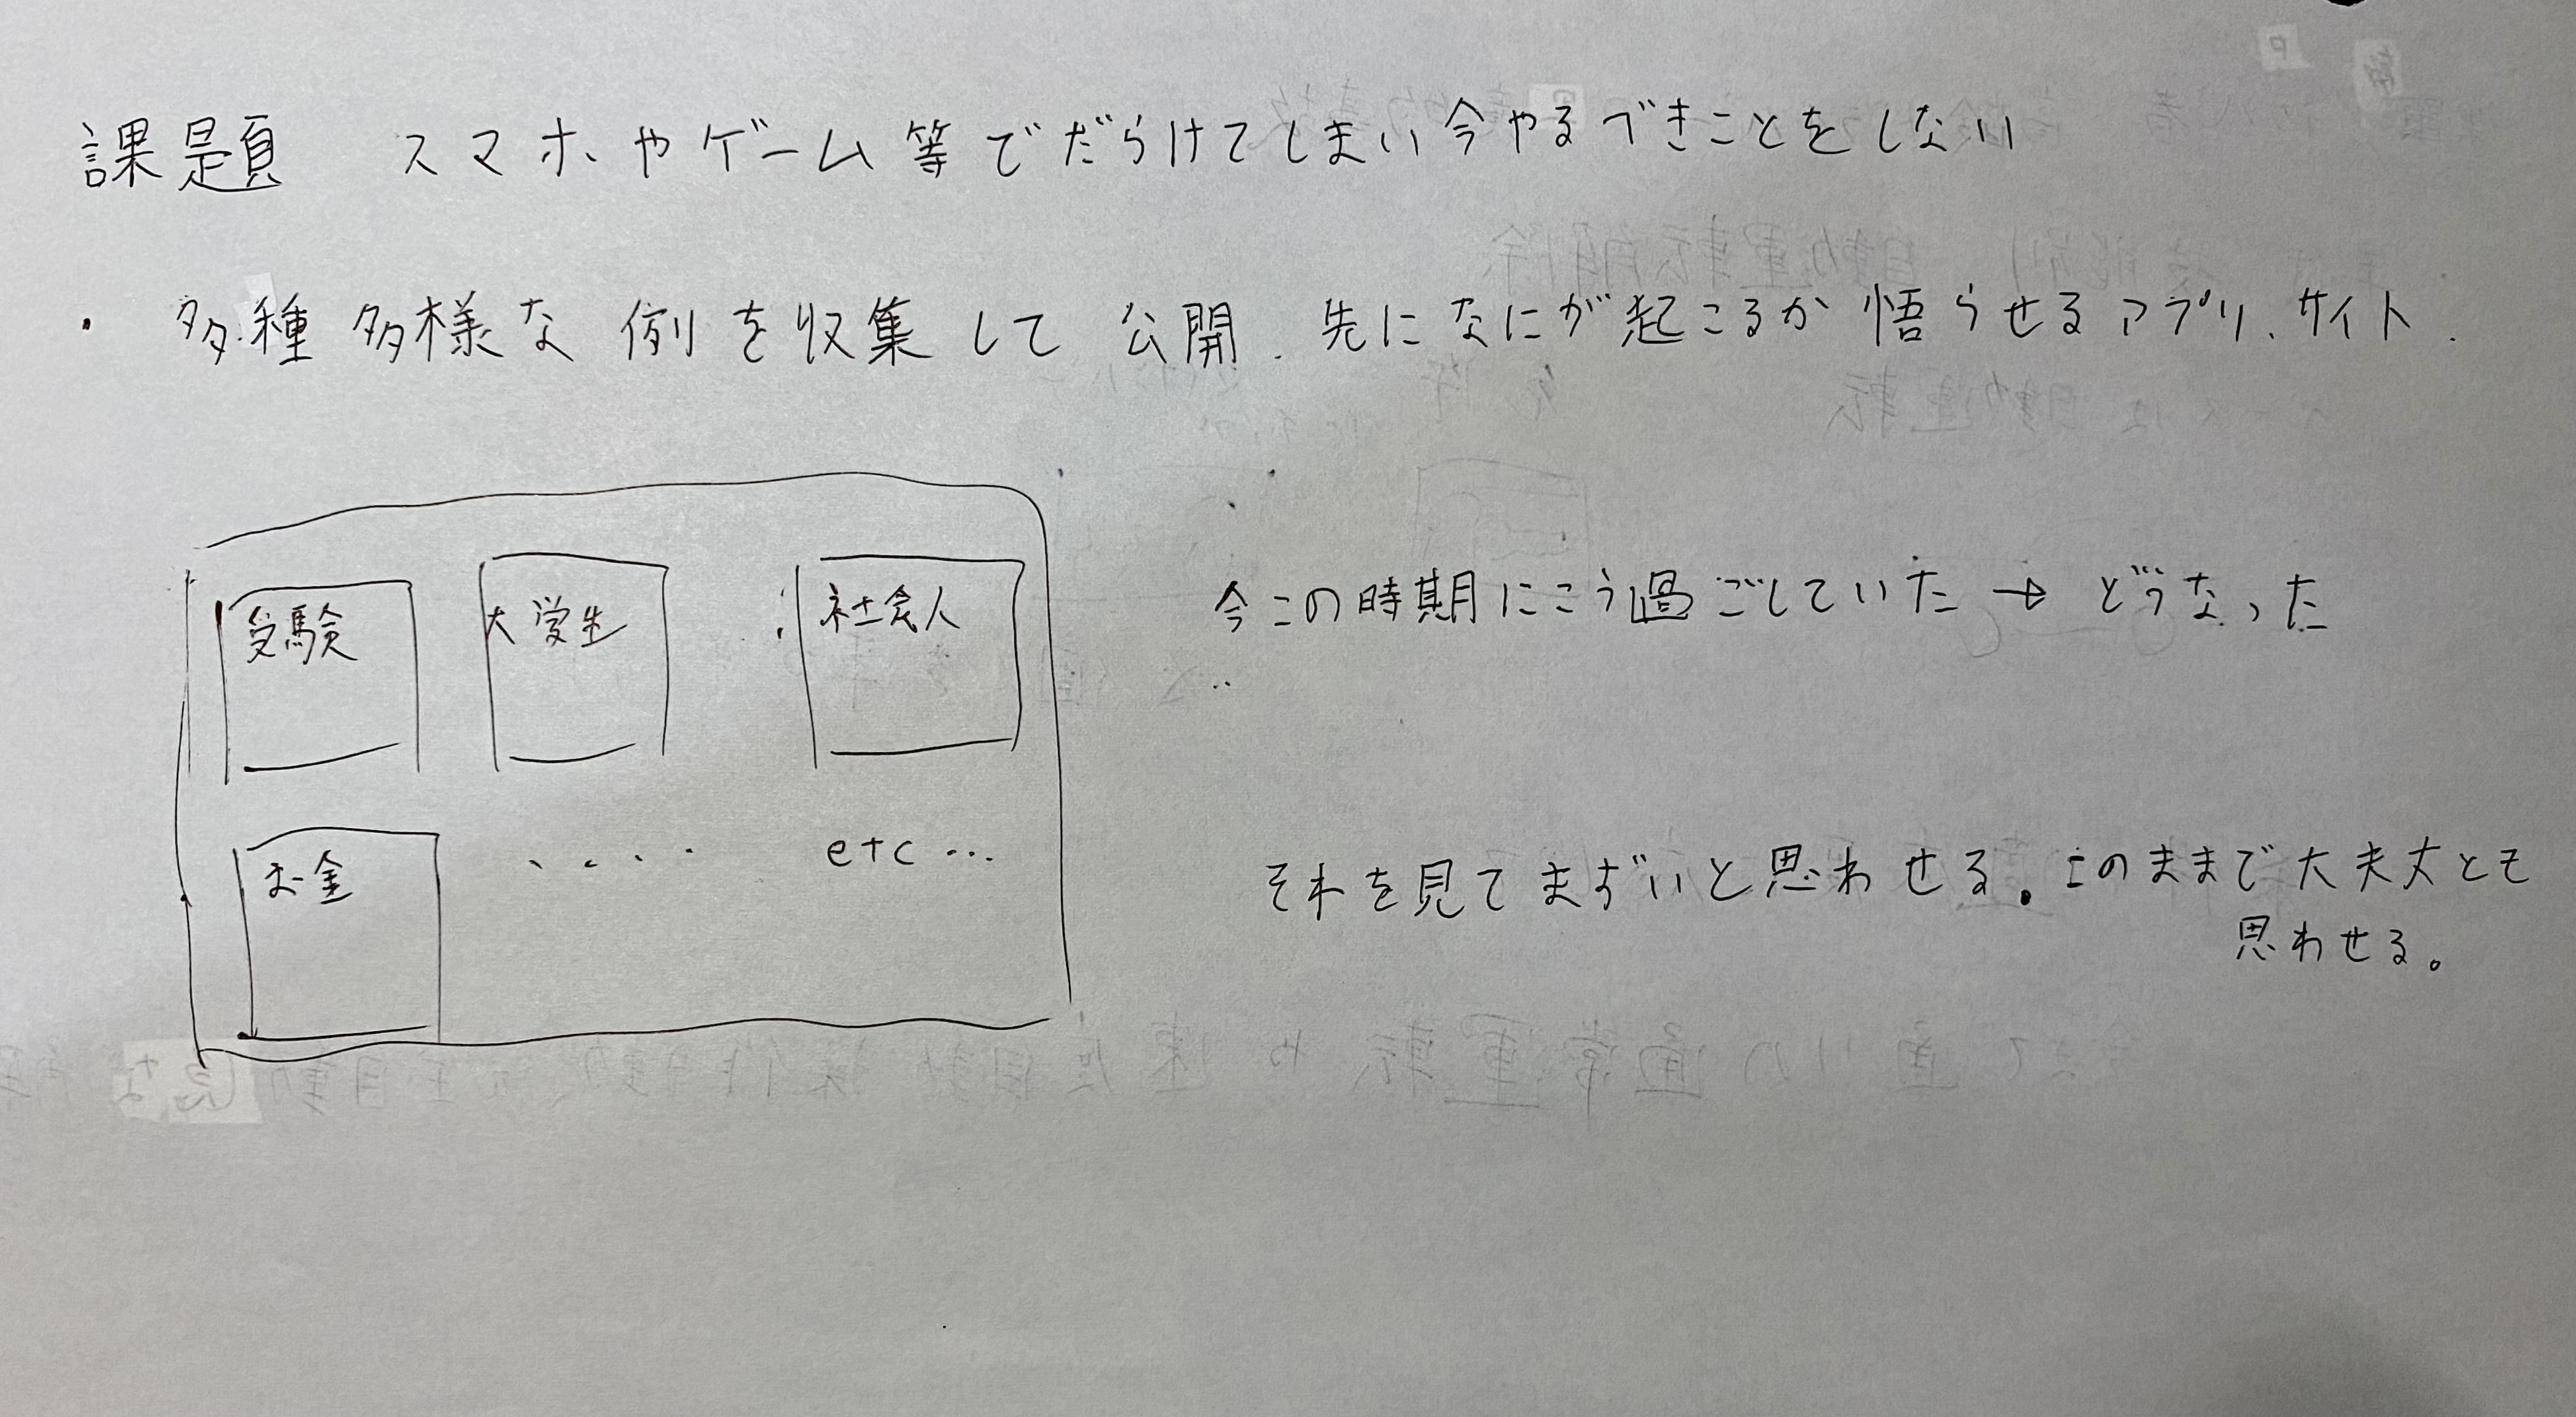 課題 スマホやゲーム等でだらけてしまい今やるべきことをしない
・ 多種多様な例を収集して公開. 先になにが起こるか悟らせるアプリ、サイト.
受験 大学生 社会人
お金 ・・・・ etc…
今この時期にこう過ごしていた → どうなった
それを見てまずいと思わせる。このままで大丈夫とも
思わせる。